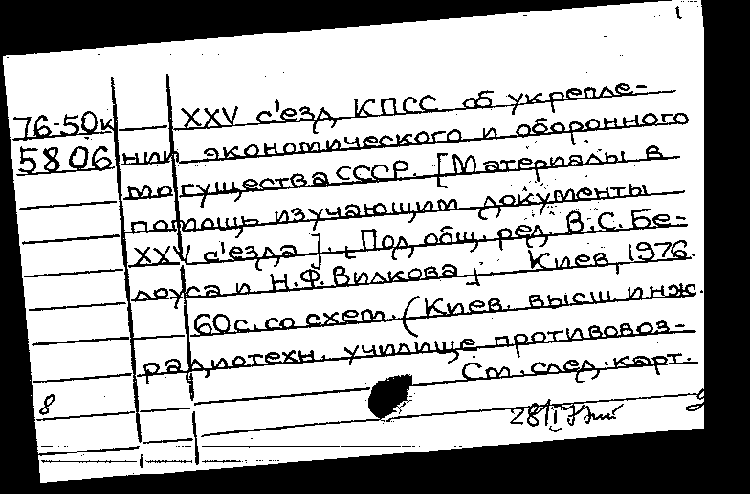 1
76-50к XXV с'езд КПСС об укрепле-
5806 нии экономического и оборонного
могущества СССР. [Материалы в
помощь изучающим документы
XXV с'езда]. [Под общ. ред. В.С. Бе-
лоуса и Н.Ф. Вилкова]. Киев, 1976.
60с. со схем. (Киев. высш. инж.
радиотехн. училище противовоз-
См. след. карт.
8
28/I